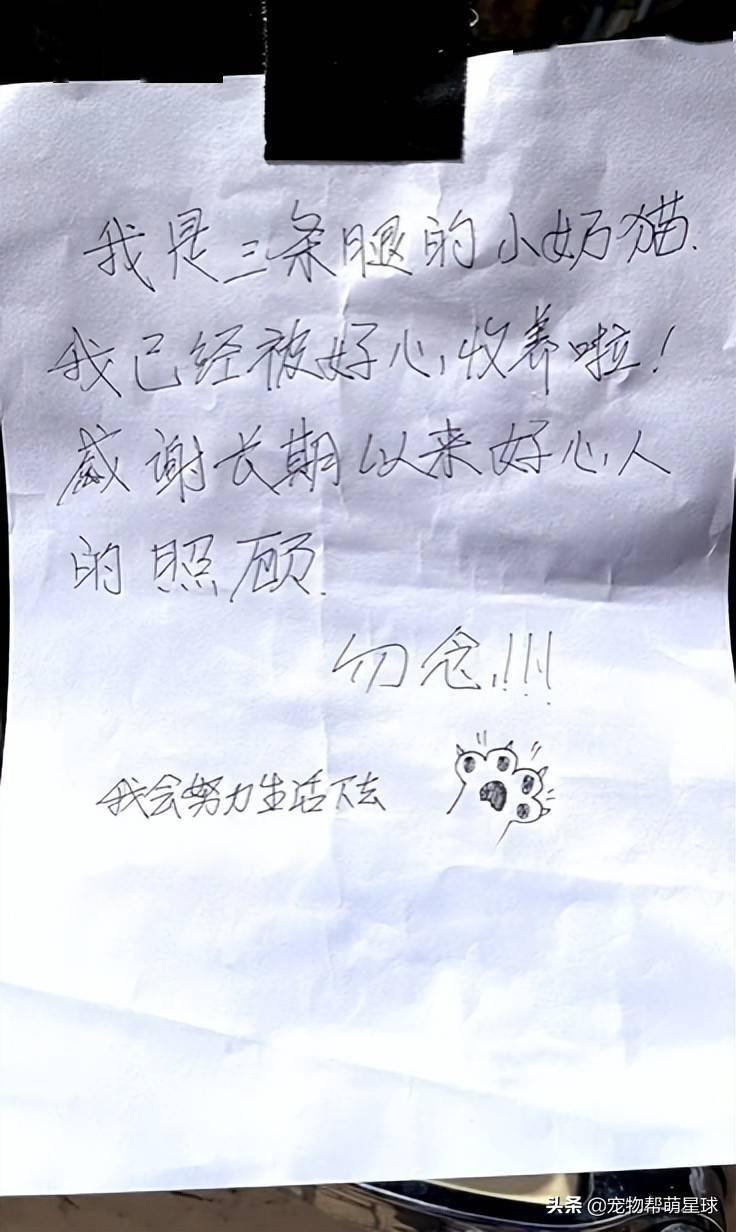 我是三条腿的小奶猫.
我已经被好心收养啦!
感谢长期以来好心人
的照顾.
勿念!!!!
我会努力生活下去
头条 @宠物帮萌星球